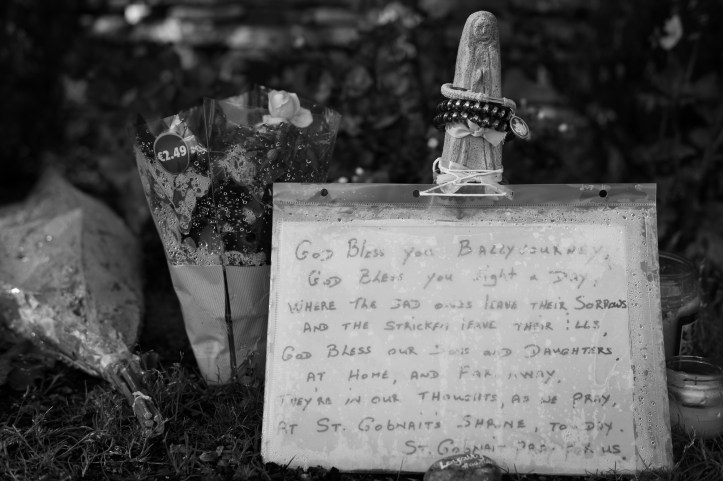 €2.49
GOD BLESS you BALLYVOURNEY,
GOD BLESS you Night & DAY,
WHERE THE SAD ONES LEAVE THEIR SORROWS
AND THE STRICKEN LEAVE THEIR ILLS,
GOD BLESS OUR SONS AND DAUGHTERS
AT HOME, AND FAR AWAY.
THEY'RE IN OUR THOUGHTS, AS WE PRAY,
AT ST. GOBNAITS SHRINE, TO DAY.
ST. GOBNAIT PRAY FOR US.